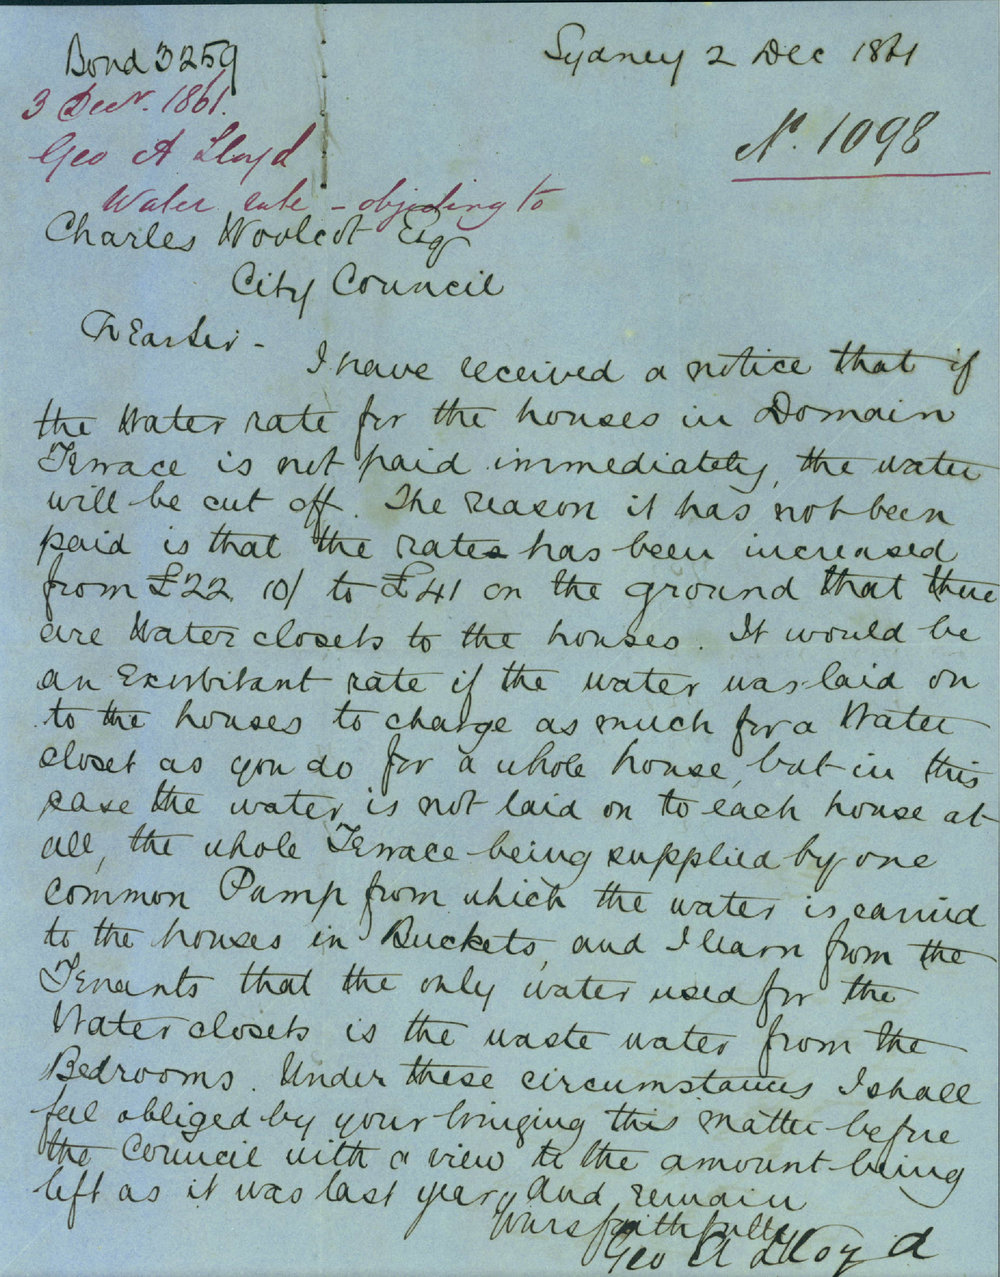 Bond 3259
Sydney 2 Dec 1861
3 Decr. 1861.
No. 1098
Geo A Lloyd
Water rate - objecting to
Charles Woolcot Esq
City Council
Dear Sir -
I have received a notice that if
the Water rate for the houses in Domain
Terrace is not paid immediately, the water
will be cut off. The reason it has not been
paid is that the rates has been increased
from £22 10/ to £41 on the ground that there
are Water closets to the houses. It would be
an Exorbitant rate if the water was laid on
to the houses to charge as much for a Water
closet as you do for a whole house, but in this
case the water is not laid on to each house at
all, the whole Terrace being supplied by one
common Pump from which the water is carried
to the houses in Buckets, and I learn from the
Tenants that the only water used for the
Water closets is the waste water from the
Bedrooms. Under these circumstances I shall
feel obliged by your bringing this matter before
the Council with a view to the amount being
left as it was last year, and remain
Yours faithfully
Geo A Lloyd